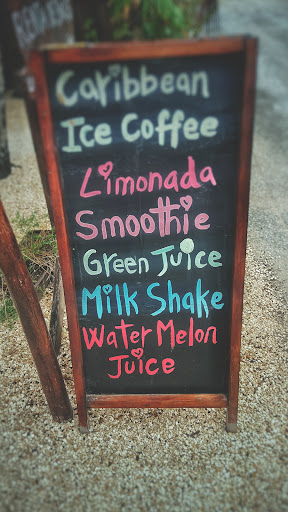 Caribbean
Ice Coffee
Limonada
Smoothie
Green Juice
Milk Shake
Water Melon
Juice